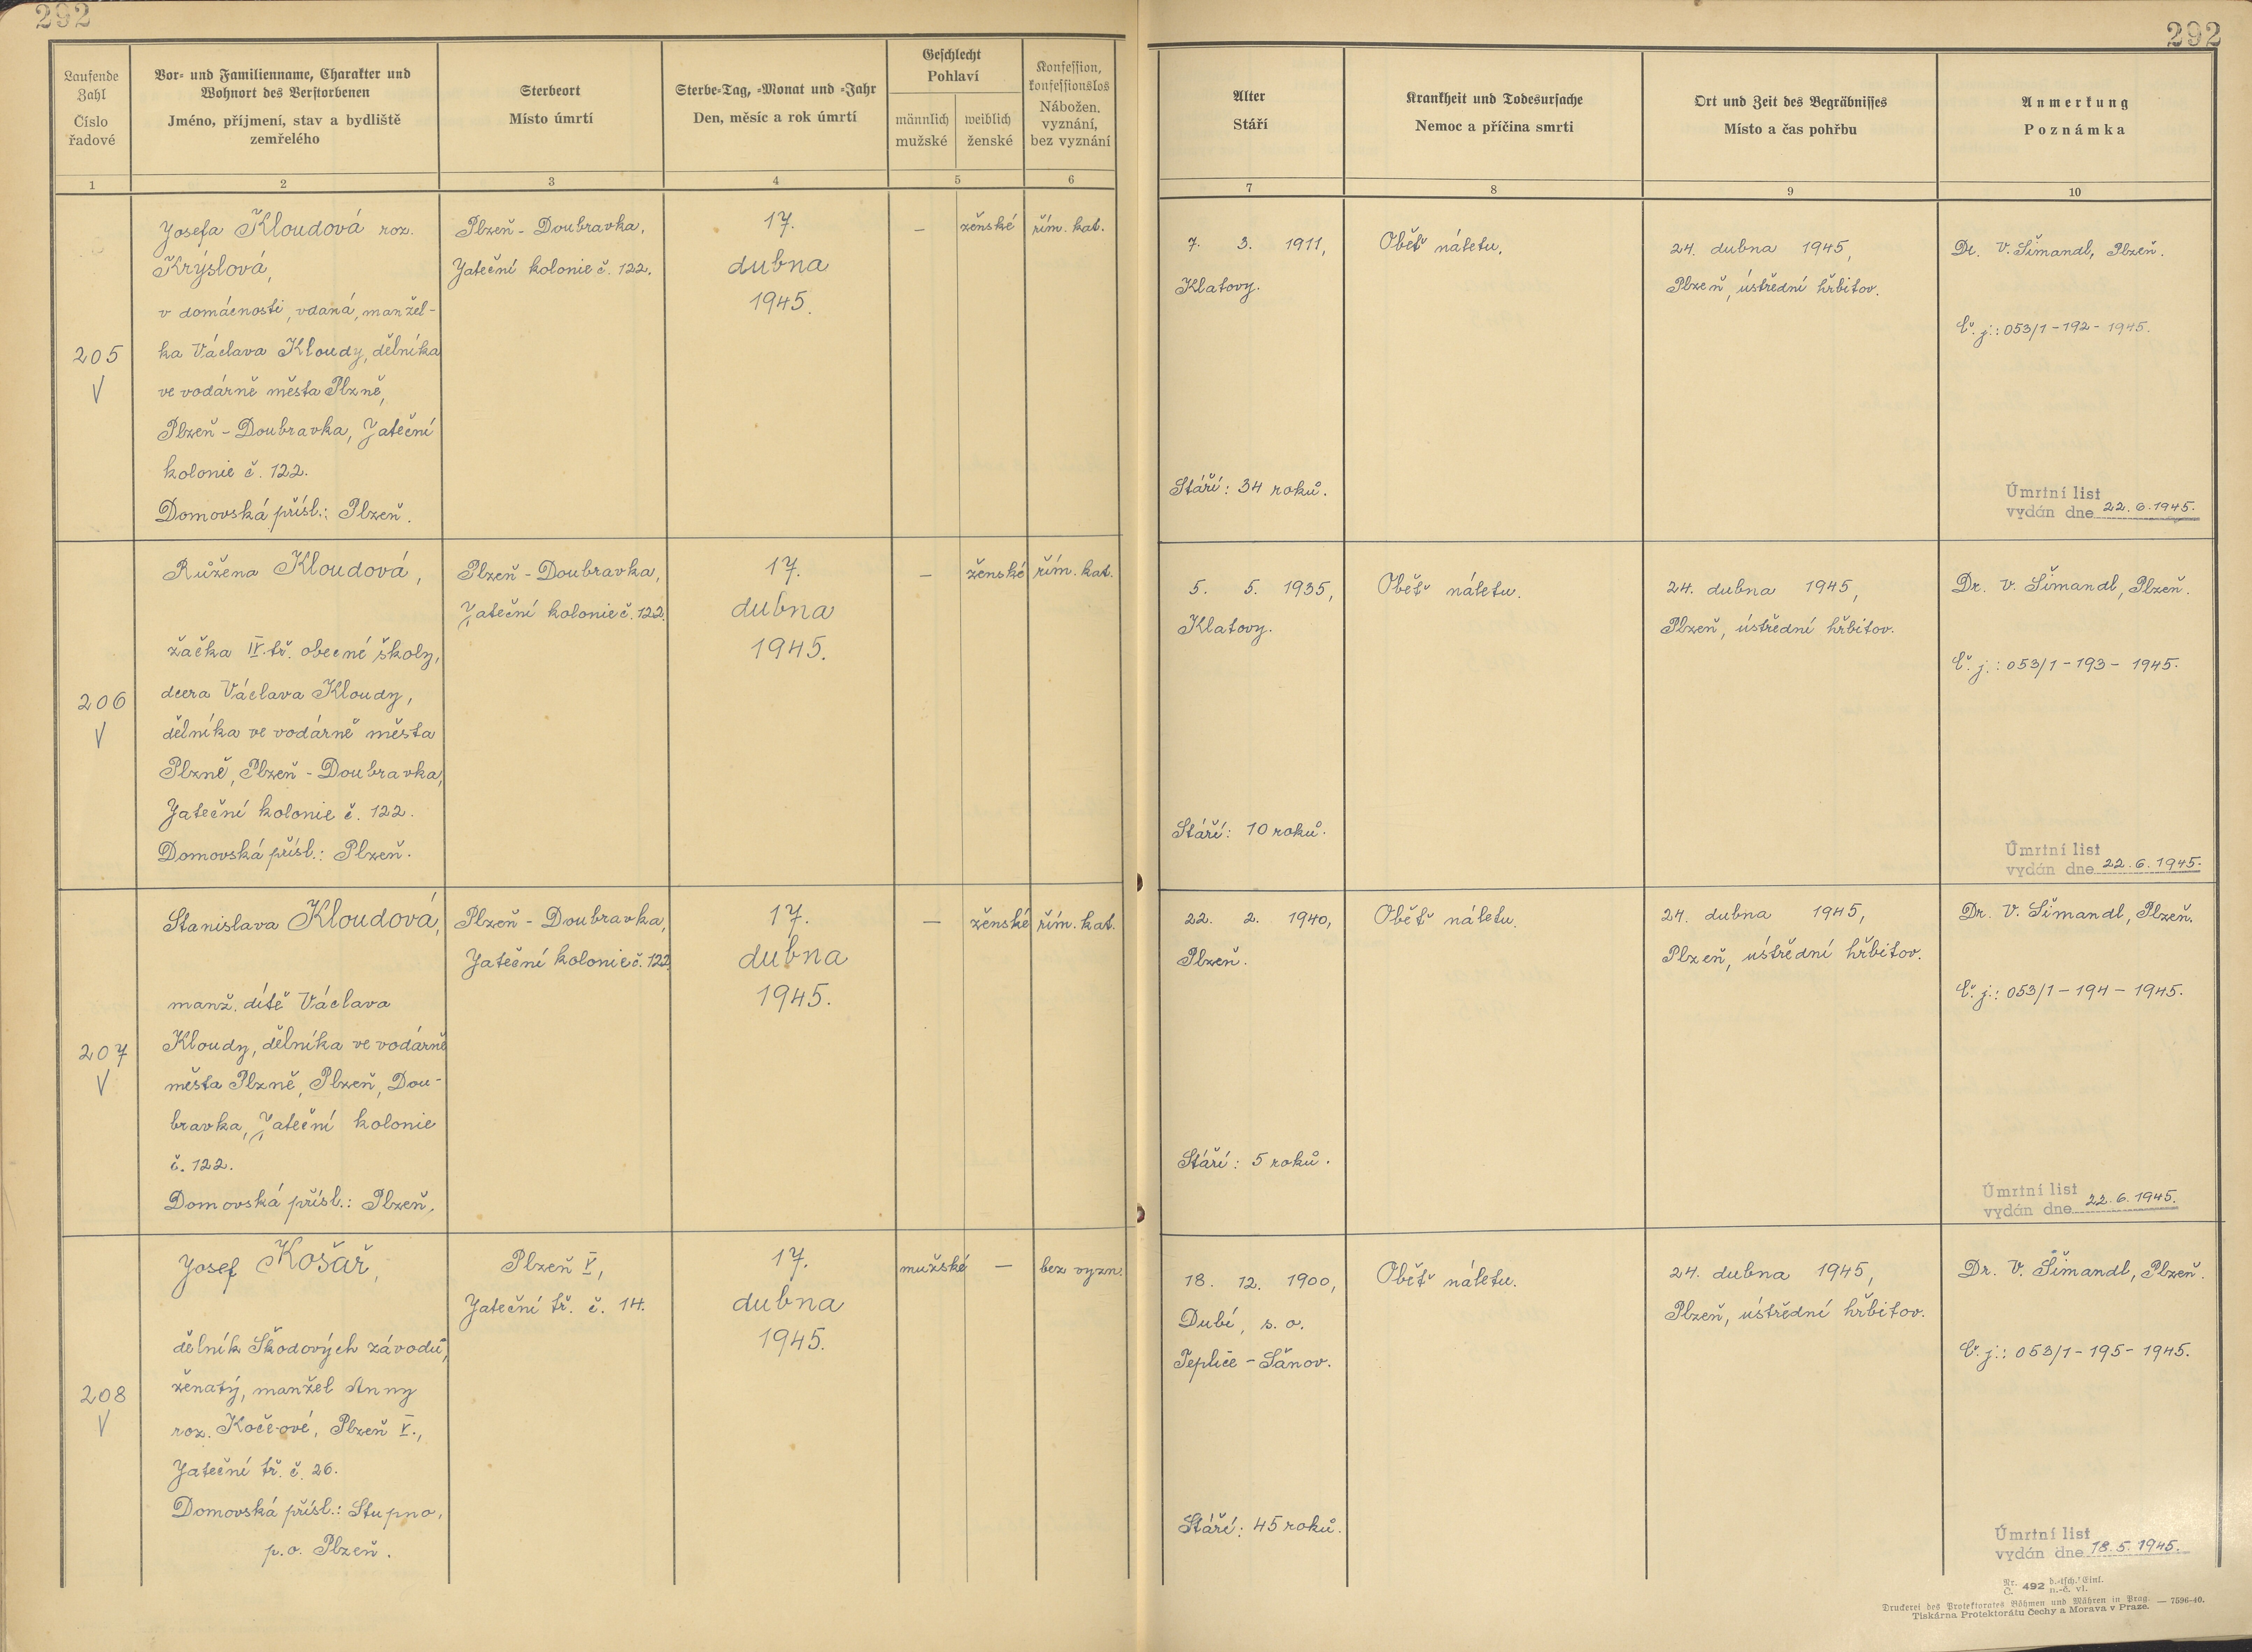 292
292
Laufende
Zahl
Číslo
řadové
Vor- und Familienname, Charakter und
Wohnort des Verstorbenen
Jméno, příjmení, stav a bydliště
zemřelého
Sterbeort
Místo úmrtí
Sterbe-Tag, -Monat und -Jahr
Den, měsíc a rok úmrtí
Geschlecht
Pohlaví
männlich
mužské
weiblich
ženské
Konfession,
konfessionslos
Nábožen.
vyznání,
bez vyznání
Alter
Stáří
Krankheit und Todesursache
Nemoc a příčina smrti
Ort und Zeit des Begräbnisses
Místo a čas pohřbu
Anmerkung
Poznámka
1 2 3 4 5 6 7 8 9 10
205
V
Josefa Kloudová roz.
Krýslová,
v domácnosti, vdaná, manžel-
ka Václava Kloudy, dělníka
ve vodárně města Plzně,
Plzeň - Doubravka, Jateční
kolonie č. 122.
Domovská přísl.: Plzeň.
Plzeň - Doubravka,
Jateční kolonie č. 122.
17.
dubna
1945.
–
ženské
řím. kat.
7. 3. 1911,
Klatovy.
Stáří: 34 roků.
Oběť náletu.
24. dubna 1945,
Plzeň, ústřední hřbitov.
Dr. V. Šimandl, Plzeň.
Č. j.: 053/1 - 192 - 1945.
Úmrtní list
vydán dne 22. 6. 1945.
206
V
Růžena Kloudová,
žačka IV. tř. obecné školy,
dcera Václava Kloudy,
dělníka ve vodárně města
Plzně, Plzeň - Doubravka,
Jateční kolonie č. 122.
Domovská přísl.: Plzeň.
Plzeň - Doubravka,
Jateční kolonie č. 122.
17.
dubna
1945.
–
ženské
řím. kat.
5. 5. 1935,
Klatovy.
Stáří: 10 roků.
Oběť náletu.
24. dubna 1945,
Plzeň, ústřední hřbitov.
Dr. V. Šimandl, Plzeň.
Č. j.: 053/1 - 193 - 1945.
Úmrtní list
vydán dne 22. 6. 1945.
207
V
Stanislava Kloudová,
manž. dítě Václava
Kloudy, dělníka ve vodárně
města Plzně, Plzeň, Dou-
bravka, Jateční kolonie
č. 122.
Domovská přísl.: Plzeň.
Plzeň - Doubravka,
Jateční kolonie č. 122.
17.
dubna
1945.
–
ženské
řím. kat.
22. 2. 1940,
Plzeň.
Stáří: 5 roků.
Oběť náletu.
24. dubna 1945,
Plzeň, ústřední hřbitov.
Dr. V. Šimandl, Plzeň.
Č. j.: 053/1 - 194 - 1945.
Úmrtní list
vydán dne 22. 6. 1945.
208
V
Josef Košař,
dělník Škodových závodů,
ženatý, manžel Anny
roz. Kočeové, Plzeň V.,
Jateční tř. č. 26.
Domovská přísl.: Stupno,
p. o. Plzeň.
Plzeň V,
Jateční tř. č. 14.
17.
dubna
1945.
mužské
–
bez vyzn.
18. 12. 1900,
Dubí, s. o.
Teplice - Šanov.
Stáří: 45 roků.
Oběť náletu.
24. dubna 1945,
Plzeň, ústřední hřbitov.
Dr. V. Šimandl, Plzeň.
Č. j.: 053/1 - 195 - 1945.
Úmrtní list
vydán dne 18. 5. 1945.
Nr. Č. 492 d.-tsch. Einl. n.-č. vl.
Druckerei des Protektorates Böhmen und Mähren in Prag. — 7596-40.
Tiskárna Protektorátu Čechy a Morava v Praze.